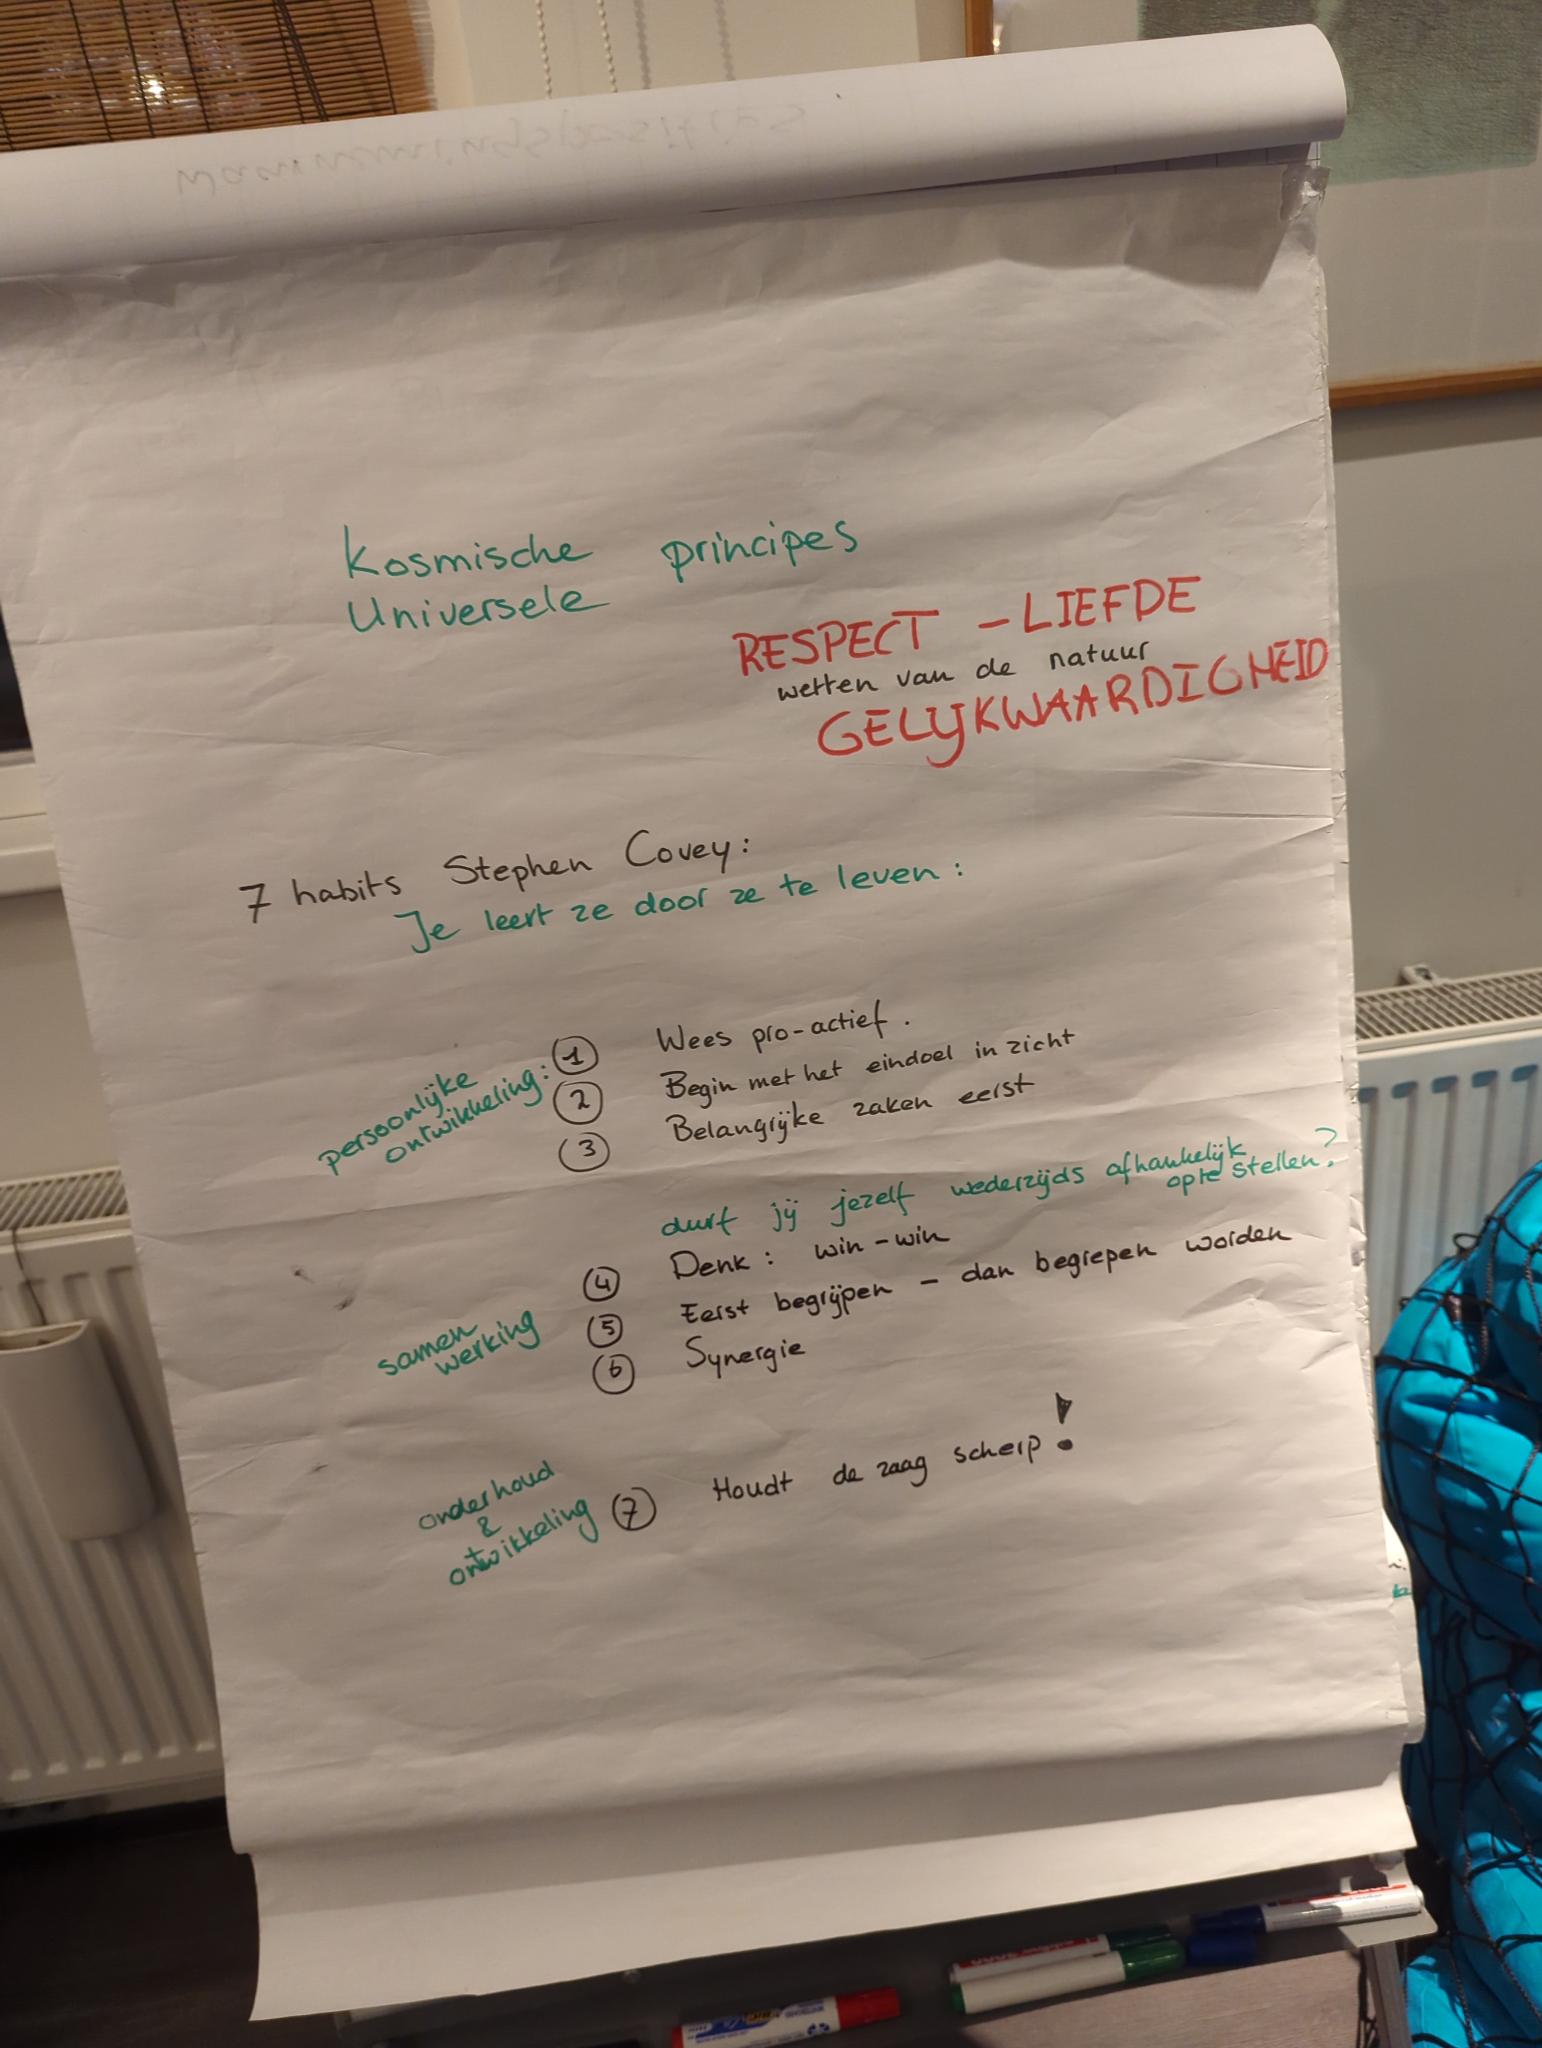 waarnemingsposities
Kosmische principes
Universele
RESPECT - LIEFDE
wetten van de natuur
GELIJKWAARDIGHEID
7 habits Stephen Covey:
Je leert ze door ze te leven:
persoonlijke
ontwikkeling:
1 Wees pro-actief.
2 Begin met het eindoel in zicht
3 Belangrijke zaken eerst
durf jij jezelf wederzijds afhankelijk
op te stellen?
samen
werking
4 Denk: win-win
5 Eerst begrijpen - dan begrepen worden
6 Synergie
onderhoud
&
ontwikkeling
7 Houdt de zaag scherp!